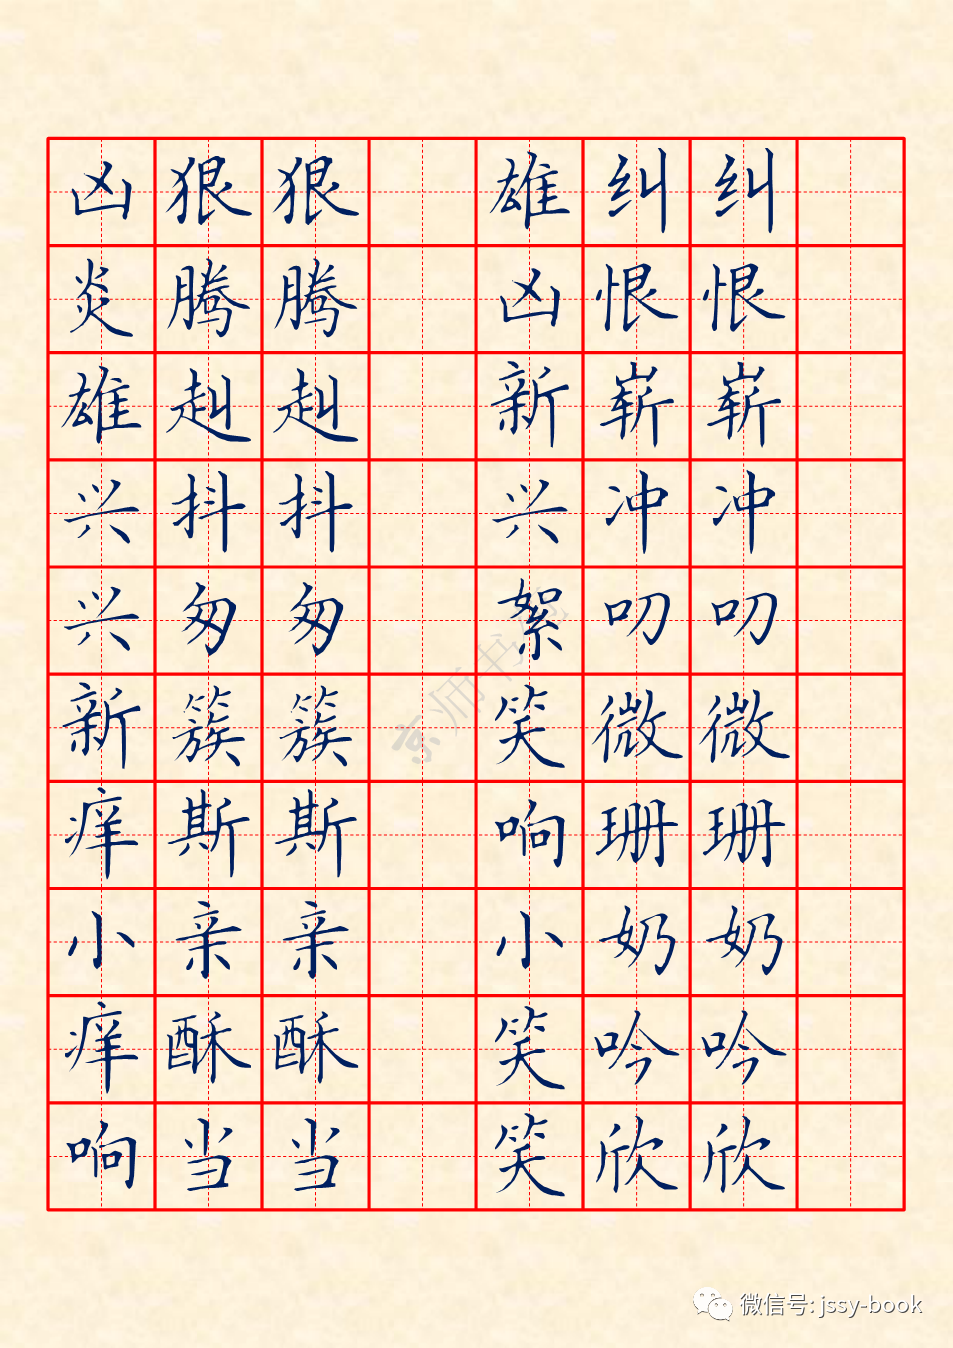 凶狠狠 雄纠纠
炎腾腾 凶恨恨
雄赳赳 新崭崭
兴抖抖 兴冲冲
兴匆匆 絮叨叨
新簇簇 笑微微
痒斯斯 响珊珊
小亲亲 小奶奶
痒酥酥 笑吟吟
响当当 笑欣欣
京师书苑
微信号: jssy-book